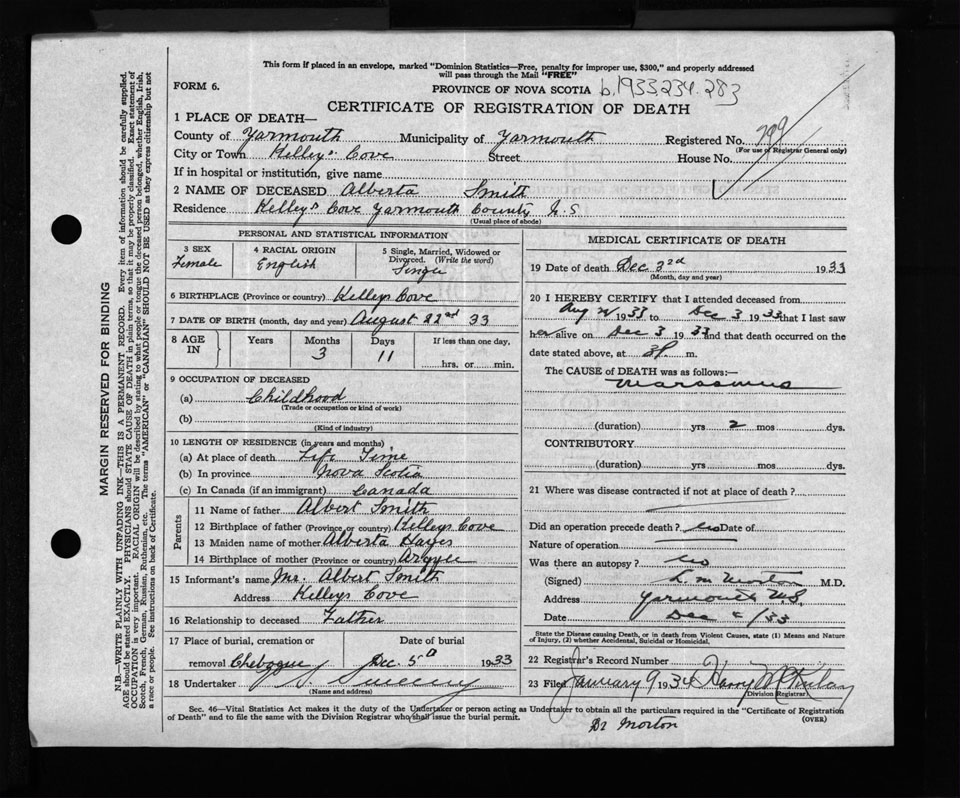 This form if placed in an envelope, marked "Dominion Statistics—Free, penalty for improper use, $300," and properly addressed
will pass through the Mail "FREE"
FORM 6.
PROVINCE OF NOVA SCOTIA b.1933.234.283
CERTIFICATE OF REGISTRATION OF DEATH
1 PLACE OF DEATH—
County of Yarmouth Municipality of Yarmouth Registered No. 799
(For use of Registrar General only)
City or Town Kelleys Cove Street House No.
If in hospital or institution, give name
2 NAME OF DECEASED Alberta Smith
Residence Kelleys Cove Yarmouth County N.S
(Usual place of abode)
PERSONAL AND STATISTICAL INFORMATION
3 SEX Female
4 RACIAL ORIGIN English
5 Single, Married, Widowed or Divorced. (Write the word) Single
6 BIRTHPLACE (Province or country) Kelleys Cove
7 DATE OF BIRTH (month, day and year) August 22nd 33
8 AGE IN Years Months 3 Days 11 If less than one day, hrs. or min.
9 OCCUPATION OF DECEASED
(a) Childhood
(Trade or occupation or kind of work)
(b)
(Kind of industry)
10 LENGTH OF RESIDENCE (in years and months)
(a) At place of death Life Time
(b) In province Nova Scotia
(c) In Canada (if an immigrant) Canada
Parents
11 Name of father Albert Smith
12 Birthplace of father (Province or country) Kelleys Cove
13 Maiden name of mother Alberta Hayes
14 Birthplace of mother (Province or country) Argyle
15 Informant's name Mr. Albert Smith
Address Kelleys Cove
16 Relationship to deceased Father
17 Place of burial, cremation or removal Chebogue Date of burial Dec. 5th 1933
18 Undertaker Sweeny
(Name and address)
MEDICAL CERTIFICATE OF DEATH
19 Date of death Dec 3rd 1933
(Month, day and year)
20 I HEREBY CERTIFY that I attended deceased from
Aug 1933 to Dec 3 1933 that I last saw
her alive on Dec 3 1933 and that death occurred on the
date stated above, at m.
The CAUSE OF DEATH was as follows:—
Marasmus
(duration) yrs 2 mos dys.
CONTRIBUTORY
(duration) yrs mos dys.
21 Where was disease contracted if not at place of death?
Did an operation precede death? no Date of
Nature of operation
Was there an autopsy? no
(Signed) L. M. Morton M.D.
Address Yarmouth N.S.
Date Dec /33
State the Disease causing Death, or in death from Violent Causes, state (1) Means and Nature
of Injury, (2) whether Accidental, Suicidal or Homicidal.
22 Registrar's Record Number
23 Filed January 9 1934 Harry
Division Registrar
Sec. 46—Vital Statistics Act makes it the duty of the Undertaker or person acting as Undertaker to obtain all the particulars required in the "Certificate of Registration
of Death" and to file the same with the Division Registrar who shall issue the burial permit. (OVER)
Dr Morton
MARGIN RESERVED FOR BINDING
N.B.—WRITE PLAINLY WITH UNFADING INK—THIS IS A PERMANENT RECORD. Every item of information should be carefully supplied.
AGE should be stated EXACTLY. PHYSICIANS should STATE CAUSE OF DEATH in plain terms, so that it may be properly classified. Exact statement of
OCCUPATION is very important. RACIAL ORIGIN will be described by stating to what people or tongue the deceased person belonged, whether English, Irish,
Scotch, French, German, Russian, Ruthenian, etc. The terms "AMERICAN" or "CANADIAN" SHOULD NOT BE USED as they express citizenship but not
a race or people. See instructions on back of Certificate.